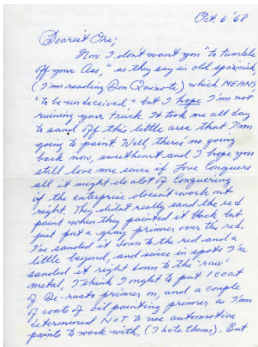 Oct. 6 '68
Dearest One;
Now I don't want you "to tumble
off your Ass," as they say in old spanish,
(I'm reading Don Quixote) which MEANS,
"to be undeceived," but I hope I'm not
ruining your truck. It took me all day
to sand off this little area that I'm
going to paint. Well, there's no going
back now, sweetheart and I hope you
still love me since if Love Conquers
all it might do alot of Conquering
if the enterprise doesn't work out
right. They didn't really sand the red
paint when they painted it black but
just put a gray primer over the red.
I've sanded it down to the red and a
little beyond, and since in spots I've
sanded it right down to the raw
metal, I think I ought to put 1 coat
of De-rusto primer on, and a couple
of coats of oil painting primer as I'm
determined NOT to use automotive
paints to work with, (I hate them). But